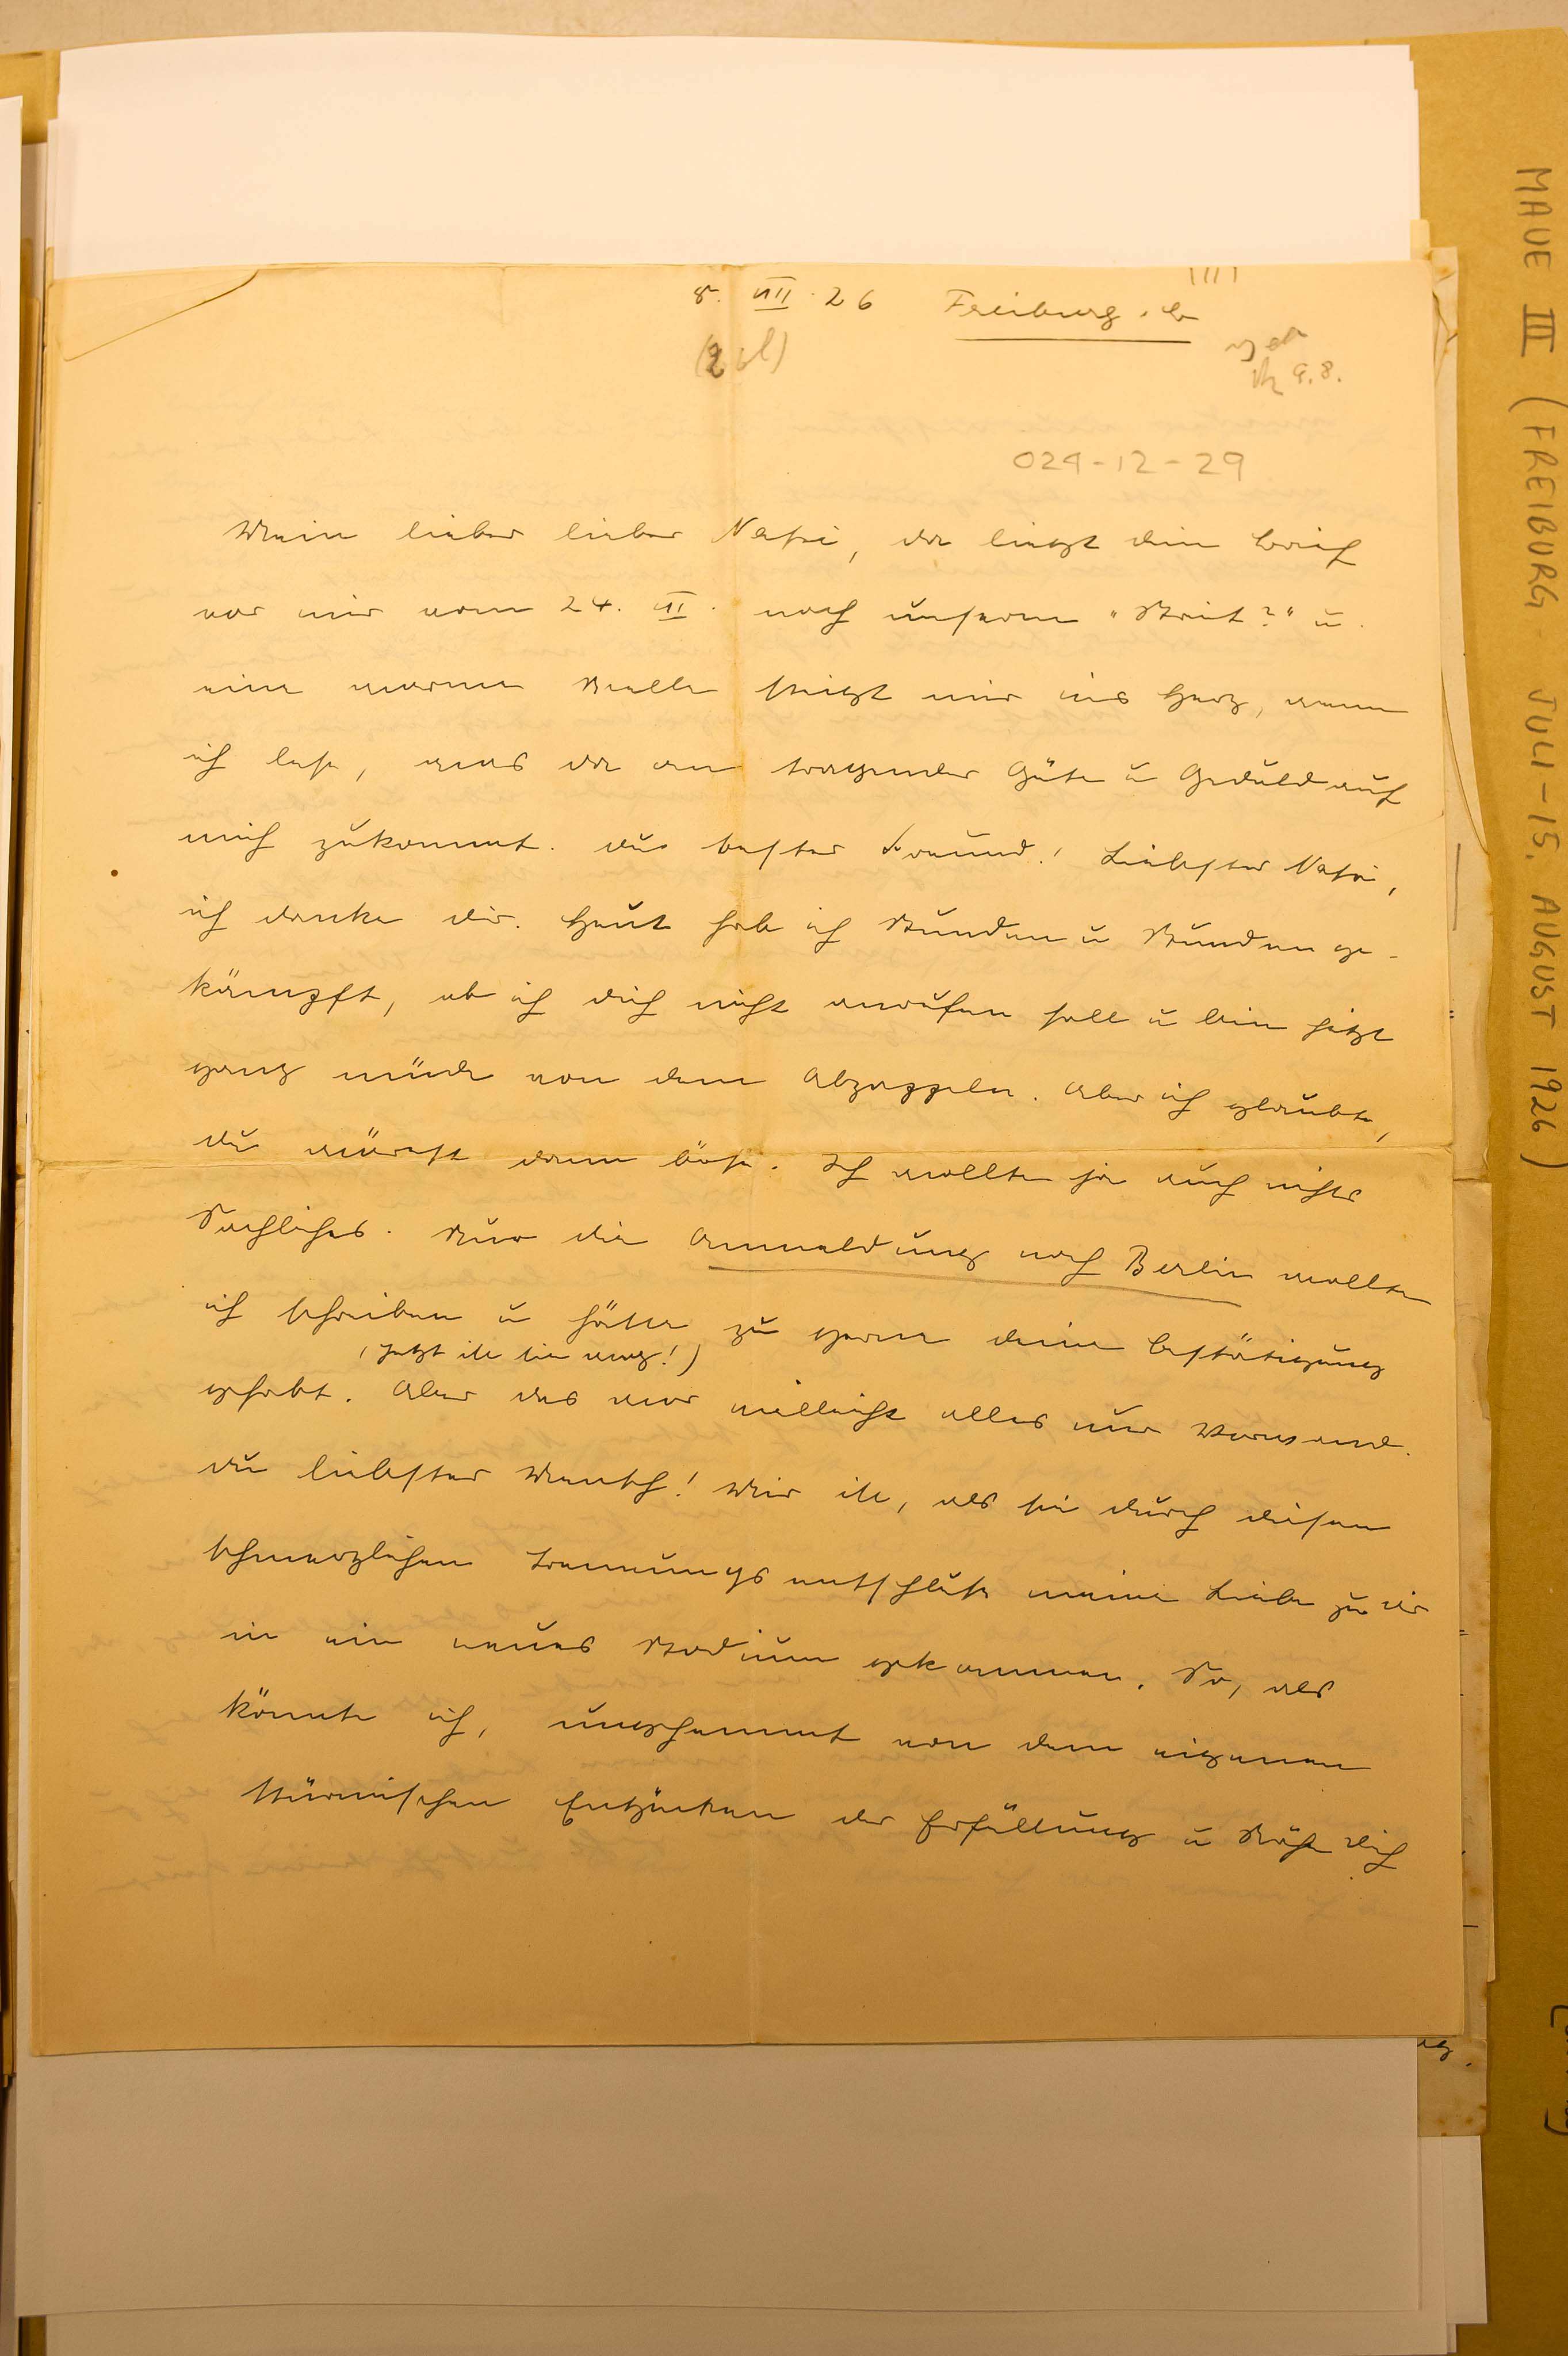 8. VII. 26 Freiburg i. B
9.8.
024-12-29
Mein lieber lieber Nafri, da liegt dein Brief
vor mir vom 24. III. nach unserm „Streit?" u.
eine warme Welle steigt mir ins Herz, wenn
ich lese, was da an tragender Güte u Geduld auf
mich zukommt. Du bester Freund! Liebster Nafri,
ich danke dir. Heut hab ich Stunden u Stunden ge-
kämpft, ob ich dich nicht anrufen soll u bin jetzt
ganz müde von dem Abzappeln. Aber ich glaubte,
du würdest dann böse. Ich wollte ja auch nichts
Sachliches. Nur die Anmeldung nach Berlin wollte
ich schreiben u hätte zu gerne deine Bestätigung
(Jetzt ist sie weg!)
gehabt. Aber das war vielleicht alles nur Vorwand.
Du liebster Mensch! Mir ist, als sei durch diesen
schmerzlichen Trennungsentschluss meine Liebe zu dir
in ein neues Stadium gekommen. So, als
könnte ich, ungehemmt von dem eigenen
stürmischen Entzücken der Erfüllung u Nähe dich
MAUE III (FREIBURG JULI-15. AUGUST 1926)